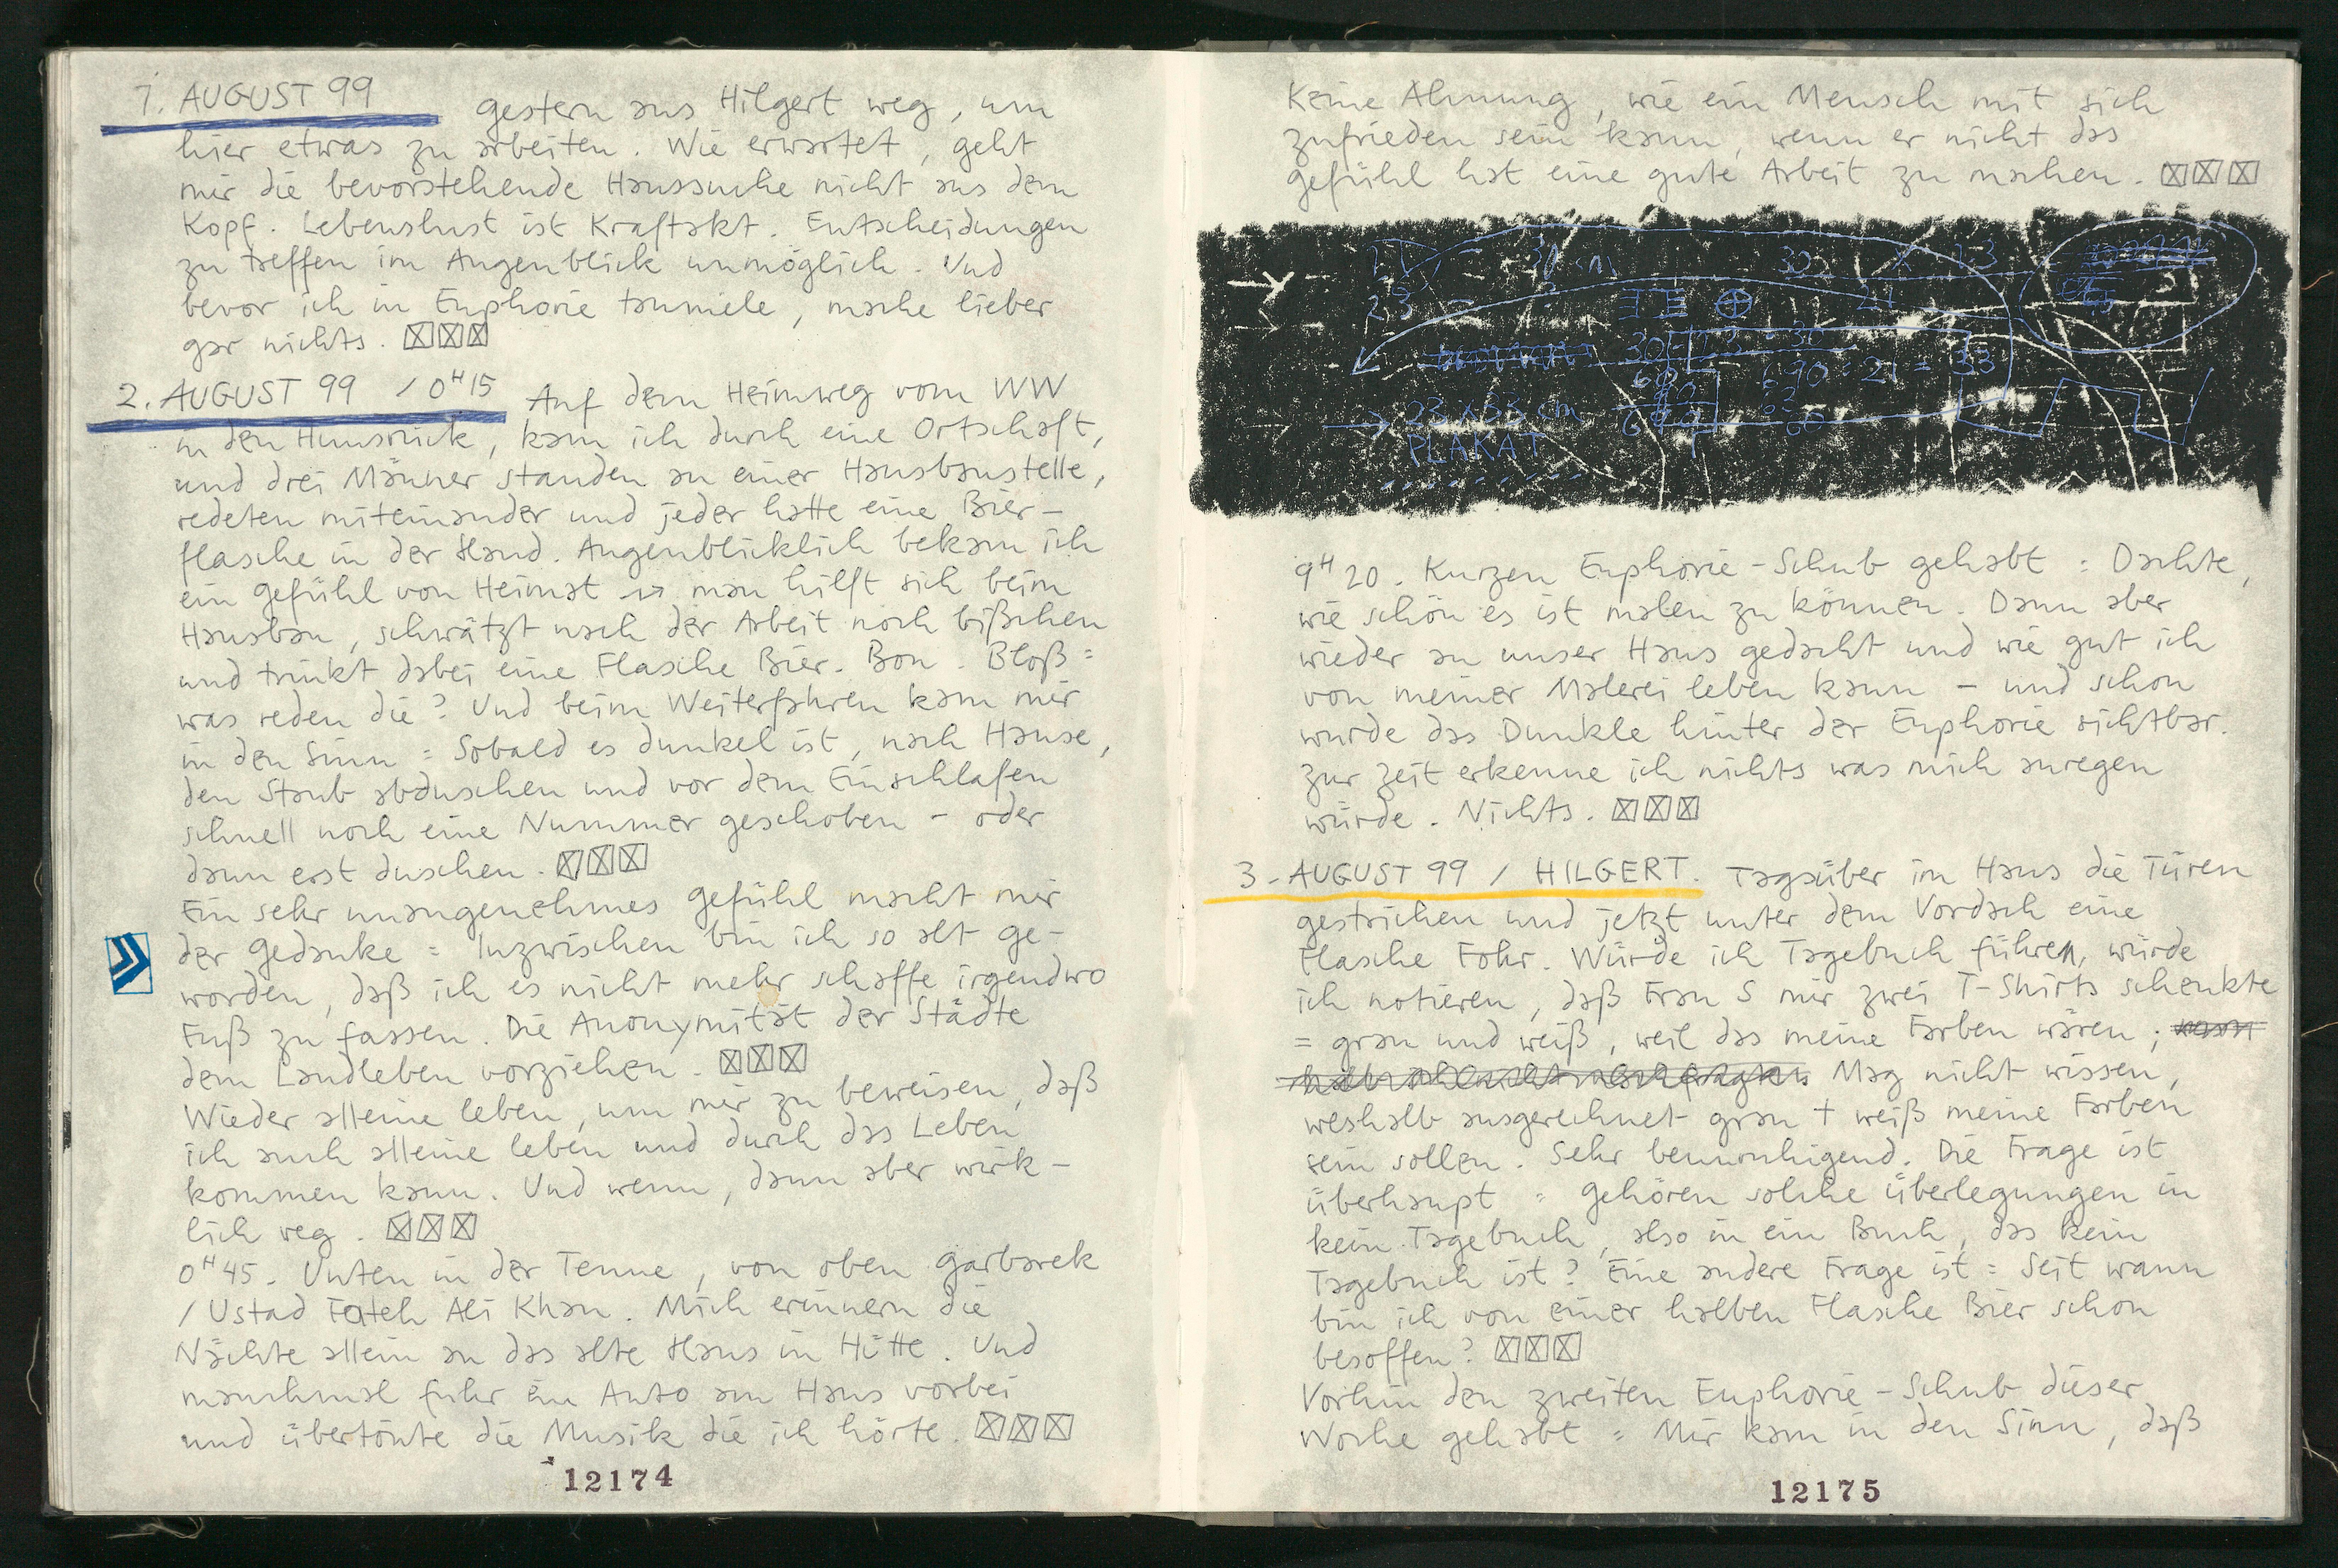 1. AUGUST 99 gestern aus Hilgert weg, um
hier etwas zu arbeiten. Wie erwartet, geht
mir die bevorstehende Haussuche nicht aus dem
Kopf. Lebenslust ist Kraftakt. Entscheidungen
zu treffen im Augenblick unmöglich. Und
bevor ich in Euphorie taumele, mache lieber
gar nichts. ☒☒☒
2. AUGUST 99 / 0H15 Auf dem Heimweg vom WW
in den Hunsrück, kam ich durch eine Ortschaft,
und drei Männer standen an einer Hausbaustelle,
redeten miteinander und jeder hatte eine Bier-
flasche in der Hand. Augenblicklich bekam ich
ein Gefühl von Heimat → man hilft sich beim
Hausbau, schwätzt nach der Arbeit noch bißchen
und trinkt dabei eine Flasche Bier. Bon. Bloß =
was reden die? Und beim Weiterfahren kam mir
in den Sinn = Sobald es dunkel ist, nach Hause,
den Staub abduschen und vor dem Einschlafen
schnell noch eine Nummer geschoben – oder
dann erst duschen. ☒☒☒
Ein sehr unangenehmes Gefühl macht mir
der Gedanke = Inzwischen bin ich so alt ge-
worden, daß ich es nicht mehr schaffe irgendwo
Fuß zu fassen. Die Anonymität der Städte
dem Landleben vorziehen. ☒☒☒
Wieder alleine leben, um mir zu beweisen, daß
ich auch alleine leben und durch das Leben
kommen kann. Und wenn, dann aber wirk-
lich weg. ☒☒☒
0H45. Unten in der Tenne, von oben Garbarek
/ Ustad Fateh Ali Khan. Mich erinnern die
Nächte allein an das alte Haus in Hütte. Und
manchmal fuhr ein Auto am Haus vorbei
und übertönte die Musik die ich hörte. ☒☒☒
12174
Keine Ahnung, wie ein Mensch mit sich
zufrieden sein kann, wenn er nicht das
Gefühl hat eine gute Arbeit zu machen. ☒☒☒
30 cm
23 x 33 cm
PLAKAT
9H20. Kurzen Euphorie-Schub gehabt = Dachte,
wie schön es ist malen zu können. Dann aber
wieder an unser Haus gedacht und wie gut ich
von meiner Malerei leben kann – und schon
wurde das Dunkle hinter der Euphorie sichtbar.
Zur Zeit erkenne ich nichts was mich anregen
würde. Nichts. ☒☒☒
3. AUGUST 99 / HILGERT. Tagsüber im Haus die Türen
gestrichen und jetzt unter dem Vordach eine
Flasche Fohr. Würde ich Tagebuch führen, würde
ich notieren, daß Frau S mir zwei T-Shirts schenkte
= grau und weiß, weil das meine Farben wären;
Mag nicht wissen,
weshalb ausgerechnet grau + weiß meine Farben
sein sollen. Sehr beunruhigend. Die Frage ist
überhaupt = Gehören solche Überlegungen in
kein Tagebuch, also in ein Buch, das kein
Tagebuch ist? Eine andere Frage ist = Seit wann
bin ich von einer halben Flasche Bier schon
besoffen? ☒☒☒
Vorhin den zweiten Euphorie-Schub dieser
Woche gehabt = Mir kam in den Sinn, daß
12175